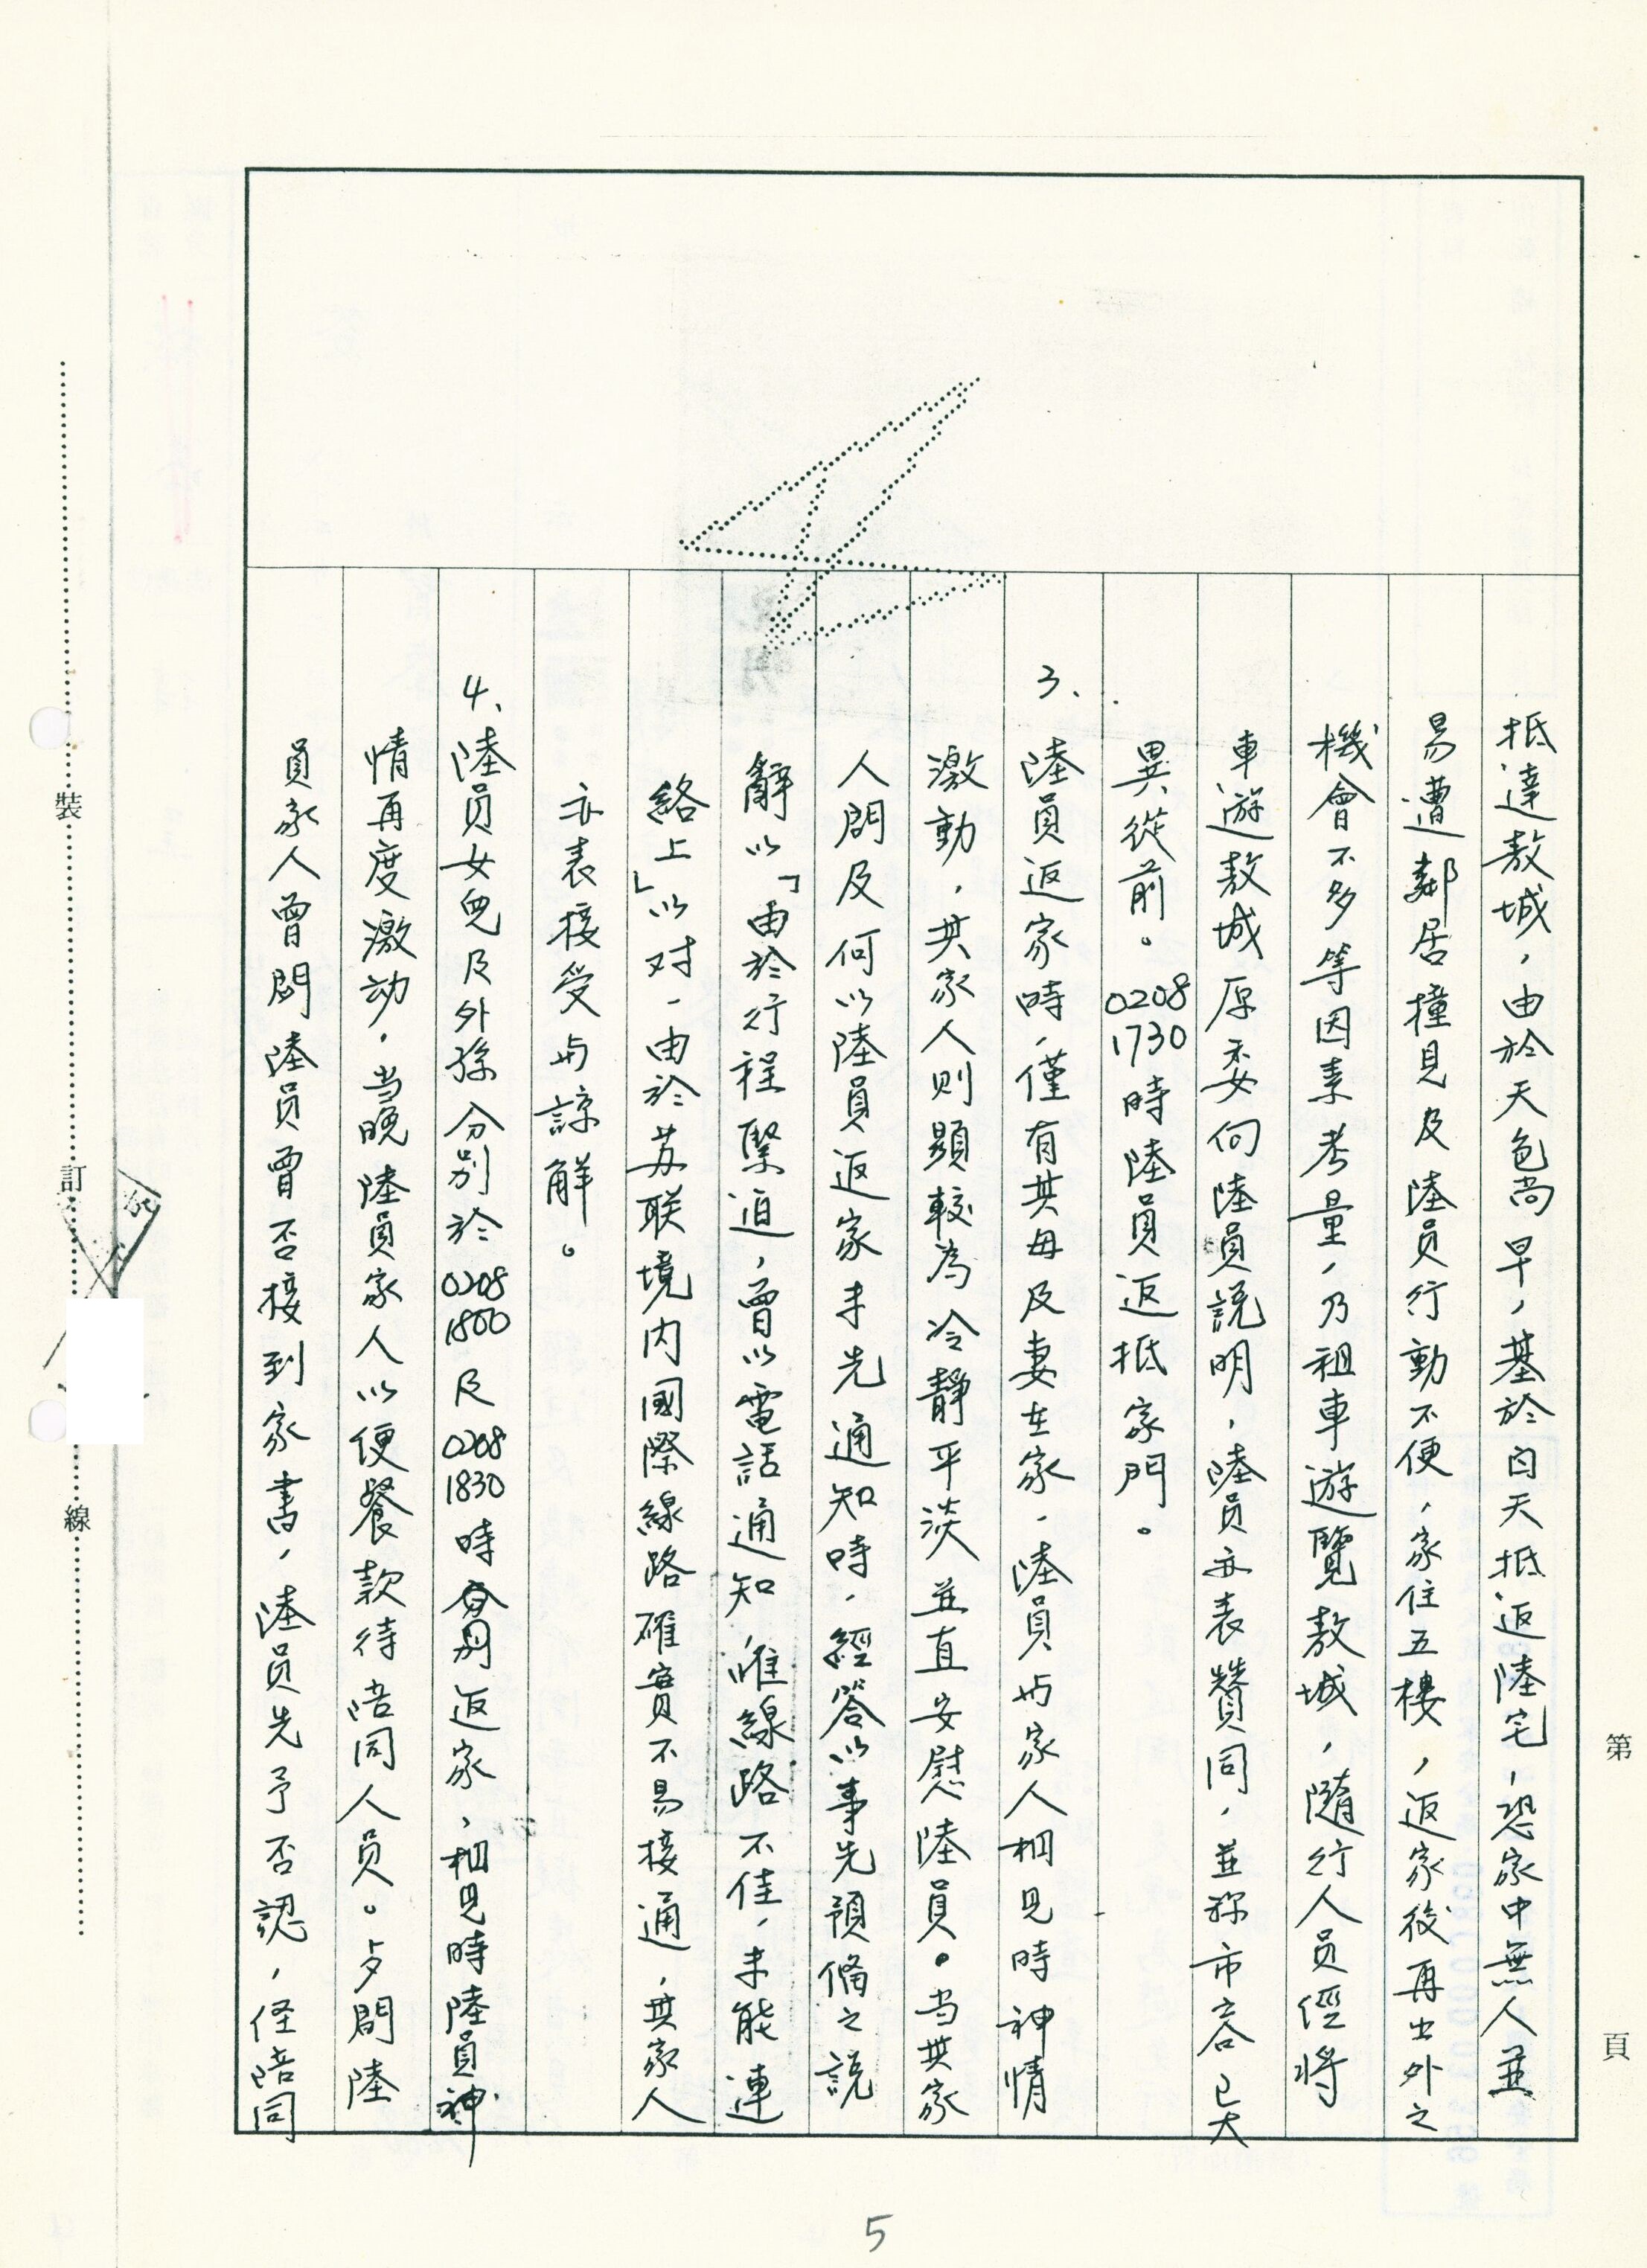 抵達敖城，由於天色尚早，基於白天抵返陸宅，恐家中無人並
易遭鄰居撞見及陸員行動不便，家住五樓，返家後再出外之
機會不多等因素考量，乃租車遊覽敖城，隨行人員經將
車遊敖城原委向陸員說明，陸員亦表贊同，並称市容已大
異從前。0208 1730時陸員返抵家門。
3、陸員返家時，僅有其母及妻在家，陸員与家人相見時神情
激動，其家人則顯較為冷靜平淡並直安慰陸員。当其家
人問及何以陸員返家未先通知時，經答以事先預備之說
辭以「由於行程緊迫，曾以電話通知，惟線路不佳，未能連
絡上」以对，由於苏联境內國際線路確實不易接通，其家人
亦表接受与諒解。
4、陸員女兒及外孫分別於0208 1800及0208 1830時分別返家，相見時陸員神
情再度激动，当晚陸員家人以便餐款待陪同人員。夕間陸
員家人曾問陸員曾否接到家書，陸員先予否認，經陪同
裝
訂
線
第
頁
5